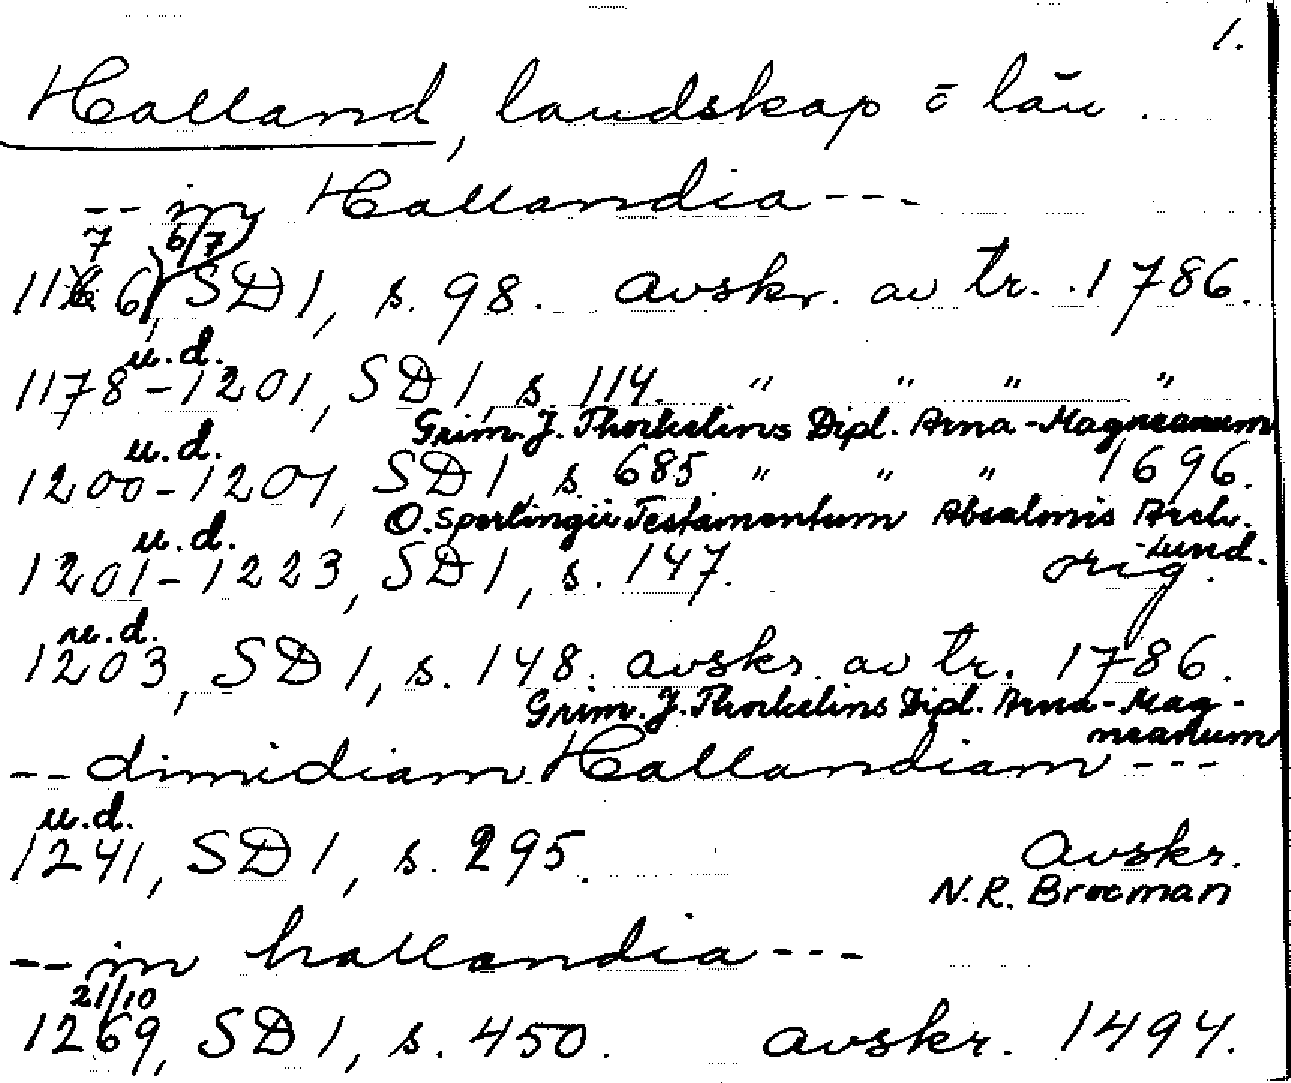 1.
Halland, landskap ō län.
-- in Hallandia ---
7 6/7
1166, SD 1, s. 98. avskr. av tr. 1786.
u.d.
1178-1201, SD 1, s. 114. " " " "
Grim. J. Thorkelins Dipl. Arna-Magnæanum
u.d.
1200-1201, SD 1, s. 685. " " " 1696.
O. Sperlingii Testamentum Absalonis Arch.
-Lund.
u.d.
1201-1223, SD 1, s. 147. orig.
u.d.
1203, SD 1, s. 148. avskr. av tr. 1786.
Grim. J. Thorkelins Dipl. Arna-Mag-
næanum
-- dimidiam Hallandiam ---
u.d.
1241, SD 1, s. 295. Avskr.
N.R. Brocman
-- in hallandia ---
21/10
1269, SD 1, s. 450. avskr. 1494.